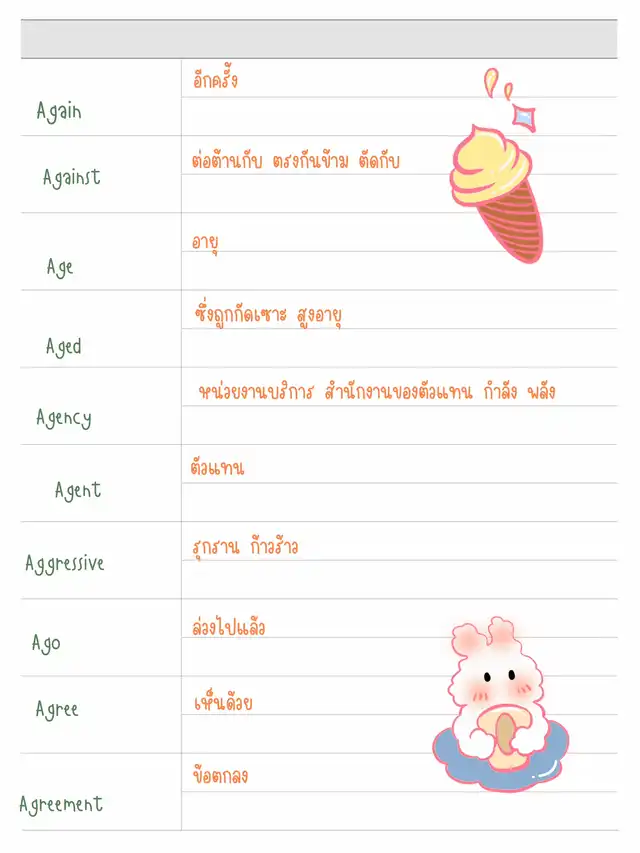 อีกครั้ง
Again
ต่อต้านกับ ตรงกันข้าม ตัดกับ
Against
อายุ
Age
ซึ่งถูกกัดเซาะ สูงอายุ
Aged
หน่วยงานบริการ สำนักงานของตัวแทน กำลัง พลัง
Agency
ตัวแทน
Agent
รุกราน ก้าวร้าว
Aggressive
ล่วงไปแล้ว
Ago
เห็นด้วย
Agree
ข้อตกลง
Agreement